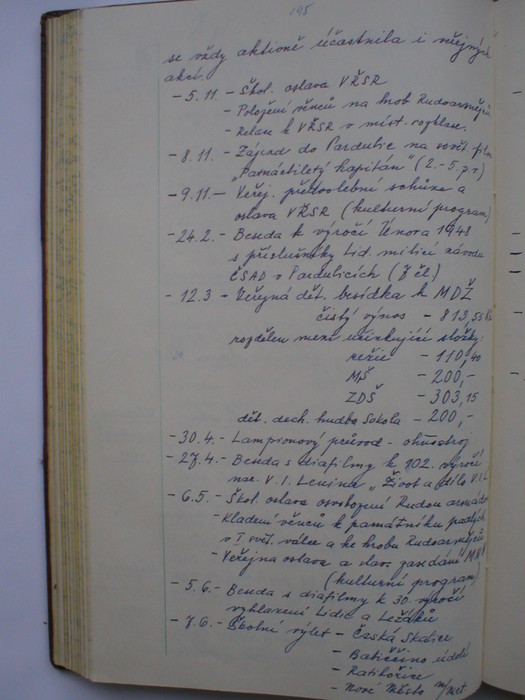 195
se vždy aktivně účastnila i veřejných
akcí.
- 5.11. - Škol. oslava VŘSR
- Položení věnců na hrob Rudoarmějců
- Relace k VŘSR v míst. rozhlase.
- 8.11. - Zájezd do Pardubic na sovět. film
"Patnáctiletý kapitán" (2.-5.p.r)
- 9.11. - Veřej. předvolební schůze a
oslava VŘSR (kulturní program)
- 24.2. - Beseda k výročí Února 1948
s příslušníky Lid. milicí závodu
ČSAD v Pardubicích (7 čl.)
- 12.3 - Veřejná dět. besídka k MDŽ
čistý výnos - 813,55 Kčs
rozdělen mezi účinkující složky:
režie - 110,40
MŠ - 200,-
ZDŠ - 303,15
dět. dech. hudba Sokola - 200,-
- 30.4. - Lampionový průvod - ohňostroj
- 27.4. - Beseda s diafilmy k 102. výročí
nar. V. I. Lenina "Život a dílo V.I.L
- 6.5. - Škol. oslava osvobození Rudou armádou
- Kladení věnců k památníku padlých
v I svět. válce a ke hrobu Rudoarmějců
- Veřejna oslava a slav. zasedání MNV
(kulturní program)
- 5.6. - Beseda s diafilmy k 30. výročí
vyhlazení Lidic a Ležáků
- 7.6. - Školní výlet - Česká Skalice
- Babiččino údolí
- Ratibořice
- Nové Město n/Met